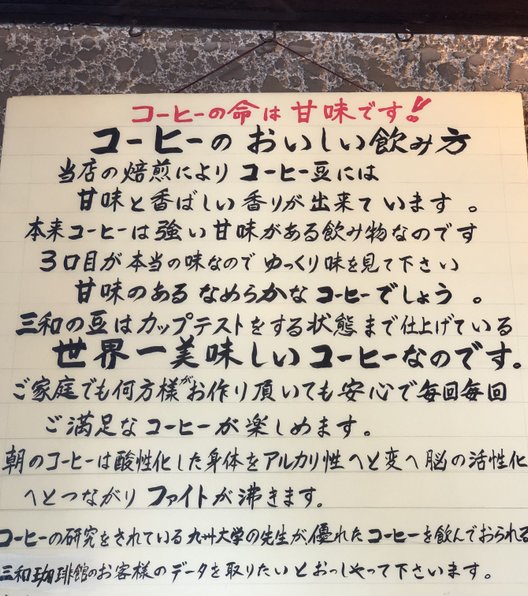 コーヒーの命は甘味です!!
コーヒーのおいしい飲み方
当店の焙煎によりコーヒー豆には
甘味と香ばしい香りが出来ています。
本来コーヒーは強い甘味がある飲み物なのです
3口目が本当の味なのでゆっくり味を見て下さい
甘味のあるなめらかなコーヒーでしょう。
三和の豆はカップテストをする状態まで仕上げている
世界一美味しいコーヒーなのです。
ご家庭でも何方様がお作り頂いても安心で毎回毎回
ご満足なコーヒーが楽しめます。
朝のコーヒーは酸性化した身体をアルカリ性へと変へ脳の活性化
へとつながりファイトが沸きます。
コーヒーの研究をされている九州大学の先生が、優れたコーヒーを飲んでおられる
三和珈琲館のお客様のデータを取りたいとおっしゃって下さいます。